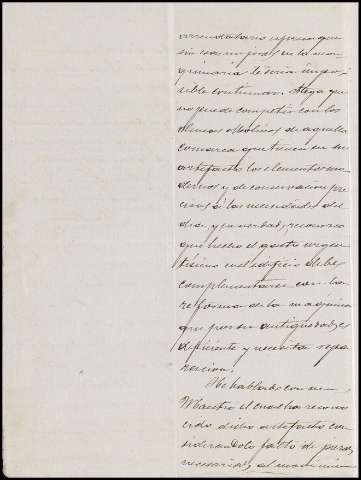 arrendatario expreso que
sin esas mejoras en la ma-
quinaria le sería impo-
sible continuar. Alega que
no puede competir con los
demas Molinos de aquella
comarca que tienen en su
artefacto los elementos mo-
dernos y de conservacion pre
cisos á las necesidades del
dia, y en verdad, reconozco
que hecho el gasto urgen
tisimo en el edificio debe
complementarse con la
reforma de la maquina
que por su antigüedad, es
deficiente y necesita repa
racion.
He hablado con un
Maestro el cual ha recono
cido dicho artefacto con
siderandolo falto de piezas
necesarias, al